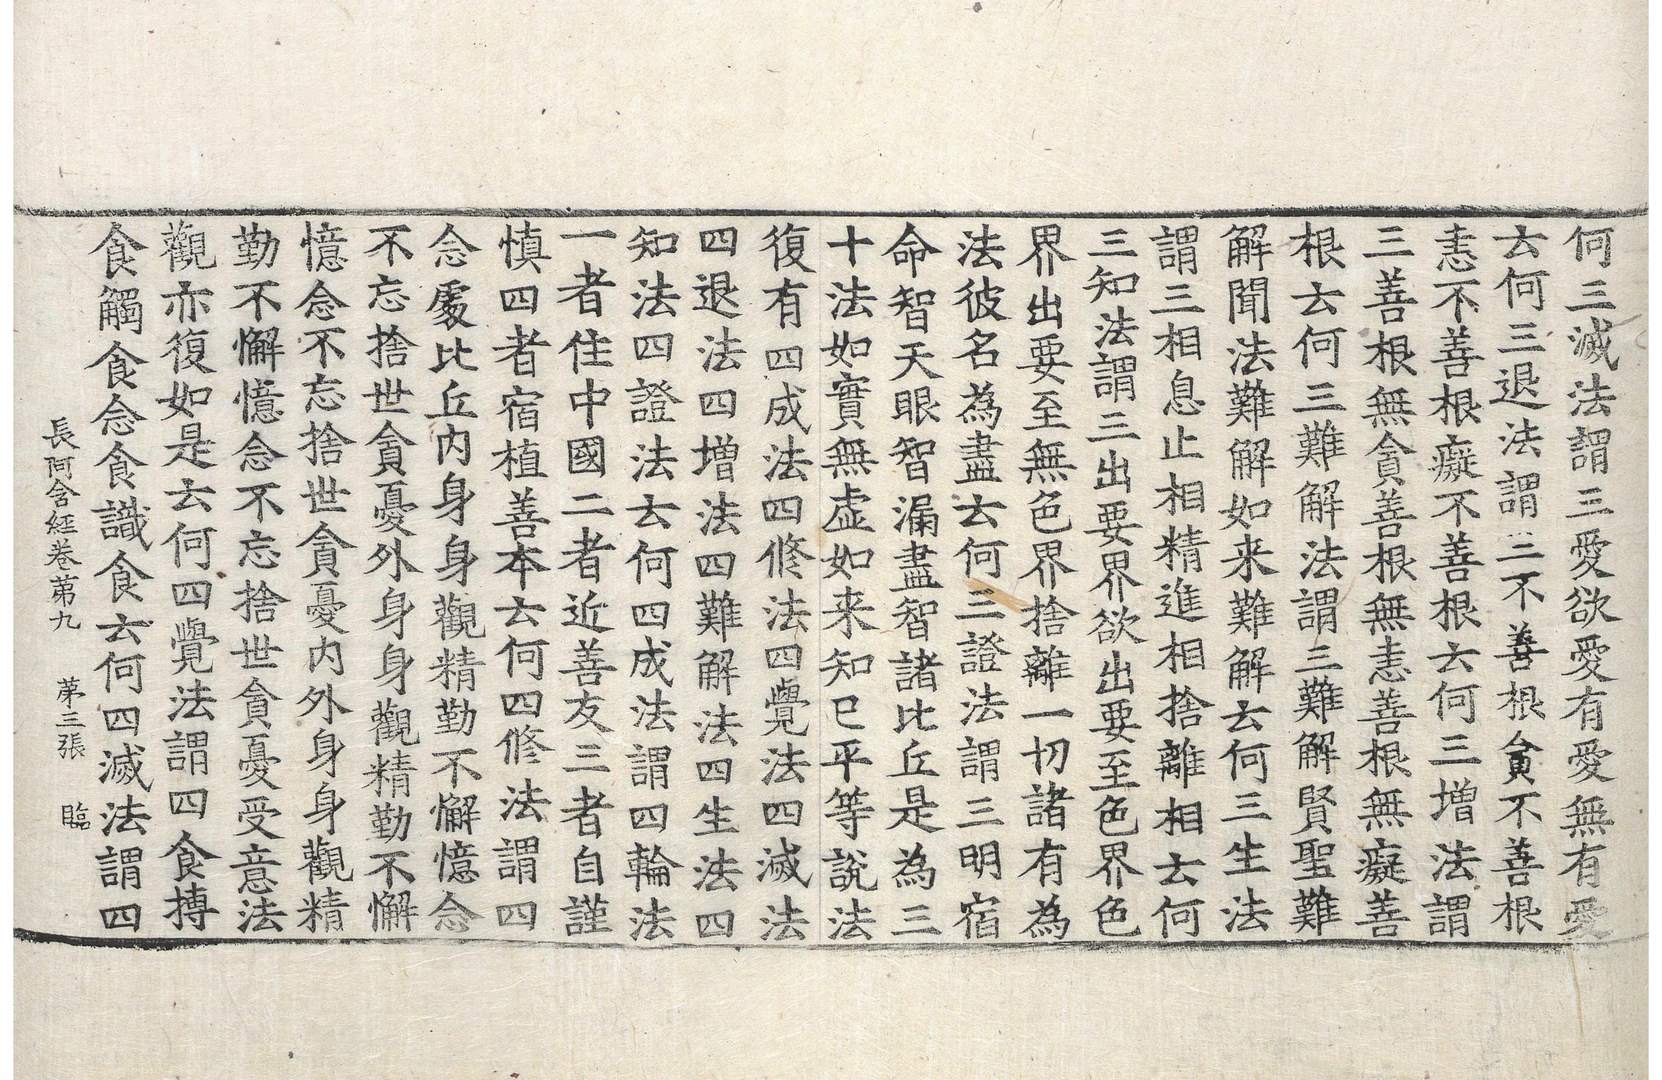 何三滅法謂三愛欲愛有愛無有愛
云何三退法謂三不善根貪不善根
恚不善根癡不善根云何三增法謂
三善根無貪善根無恚善根無癡善
根云何三難解法謂三難解賢聖難
解聞法難解如来難解云何三生法
謂三相息止相精進相捨離相云何
三知法謂三出要界欲出要至色界色
界出要至無色界捨離一切諸有為
法彼名為盡云何三證法謂三明宿
命智天眼智漏盡智諸比丘是為三
十法如實無虛如来知已平等說法
復有四成法四修法四覺法四滅法
四退法四增法四難解法四生法四
知法四證法云何四成法謂四輪法
一者住中國二者近善友三者自謹
慎四者宿植善本云何四修法謂四
念處比丘內身身觀精勤不懈憶念
不忘捨世貪憂外身身觀精勤不懈
憶念不忘捨世貪憂內外身身觀精
勤不懈憶念不忘捨世貪憂受意法
觀亦復如是云何四覺法謂四食摶
食觸食念食識食云何四滅法謂四
長阿含經卷第九 第三張 臨